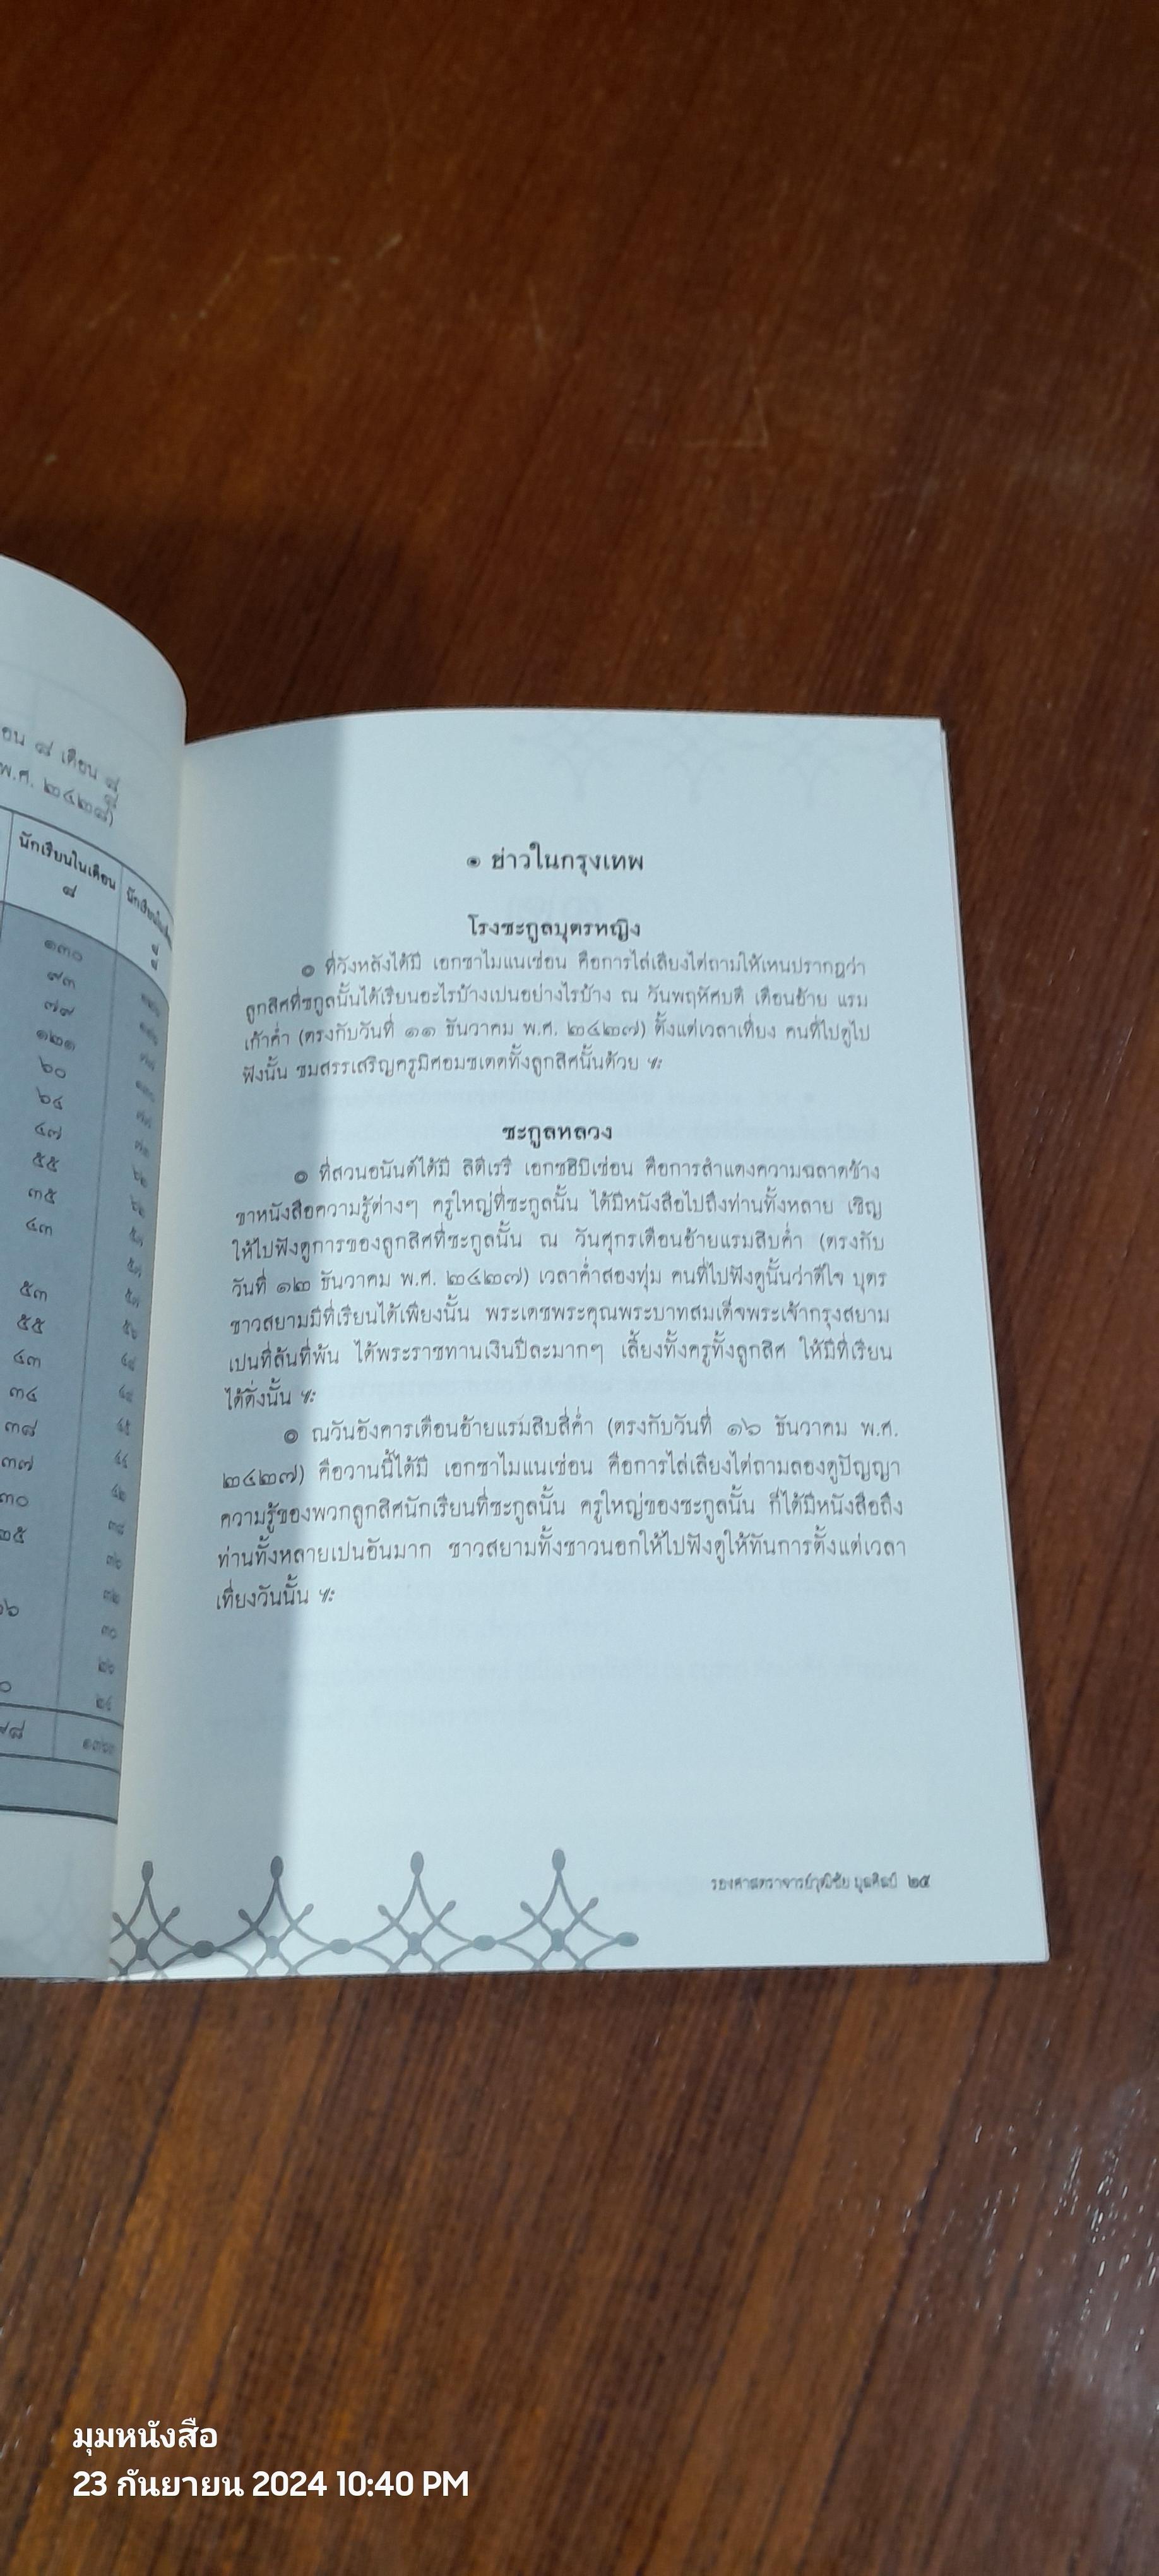 อน ๘ เดือน ๘
พ.ศ. ๒๔๒๘)
นักเรียนในเดือน
๘
๑๓๐
๙๓
๗๙
๑๒๑
๖๐
๖๔
๔๗
๕๕
๓๕
๔๓
๕๓
๕๕
๔๓
๓๔
๓๘
๓๗
๓๐
๒๕
๏ ข่าวในกรุงเทพ
โรงซะกูลบุตรหญิง
๏ ที่วังหลังได้มี เอกซาไมแนเซ่อน คือการไล่เลียงไต่ถามให้เหนปรากฎว่า
ลูกสิศที่ซกูลนั้นได้เรียนอะไรบ้างเปนอย่างไรบ้าง ณ วันพฤหัศบดี เดือนอ้าย แรม
เก้าค่ำ (ตรงกับวันที่ ๑๑ ธันวาคม พ.ศ. ๒๔๒๗) ตั้งแต่เวลาเที่ยง คนที่ไปดูไป
ฟังนั้น ชมสรรเสริญครูมิศอมซเตดทั้งลูกสิศนั้นด้วย ๚ะ
ซะกูลหลวง
๏ ที่สวนอนันต์ได้มี ลิตีเรรี เอกซฮิบิเซ่อน คือการสำแดงความฉลาดข้าง
ขาหนังสือความรู้ต่างๆ ครูใหญ่ที่ซะกูลนั้น ได้มีหนังสือไปถึงท่านทั้งหลาย เชิญ
ให้ไปฟังดูการของลูกสิศที่ซะกูลนั้น ณ วันศุกรเดือนอ้ายแรมสิบค่ำ (ตรงกับ
วันที่ ๑๒ ธันวาคม พ.ศ. ๒๔๒๗) เวลาค่ำสองทุ่ม คนที่ไปฟังดูนั้นว่าดีใจ บุตร
ชาวสยามมีที่เรียนได้เพียงนั้น พระเดชพระคุณพระบาทสมเด็จพระเจ้ากรุงสยาม
เปนที่ล้นที่พ้น ได้พระราชทานเงินปีละมากๆ เลี้ยงทั้งครูทั้งลูกสิศ ให้มีที่เรียน
ได้ดั่งนั้น ๚ะ
๏ ณวันอังคารเดือนอ้ายแรมสิบสี่ค่ำ (ตรงกับวันที่ ๑๖ ธันวาคม พ.ศ.
๒๔๒๗) คือวานนี้ได้มี เอกซาไมแนเซ่อน คือการไล่เลียงไต่ถามลองดูปัญญา
ความรู้ของพวกลูกสิศนักเรียนที่ซะกูลนั้น ครูใหญ่ของซะกูลนั้น ก็ได้มีหนังสือถึง
ท่านทั้งหลายเปนอันมาก ชาวสยามทั้งชาวนอกให้ไปฟังดูให้ทันการตั้งแต่เวลา
เที่ยงวันนั้น ๚ะ
รองศาสตราจารย์วุฒิชัย มูลศิลป์ ๒๕
มุมหนังสือ
23 กันยายน 2024 10:40 PM